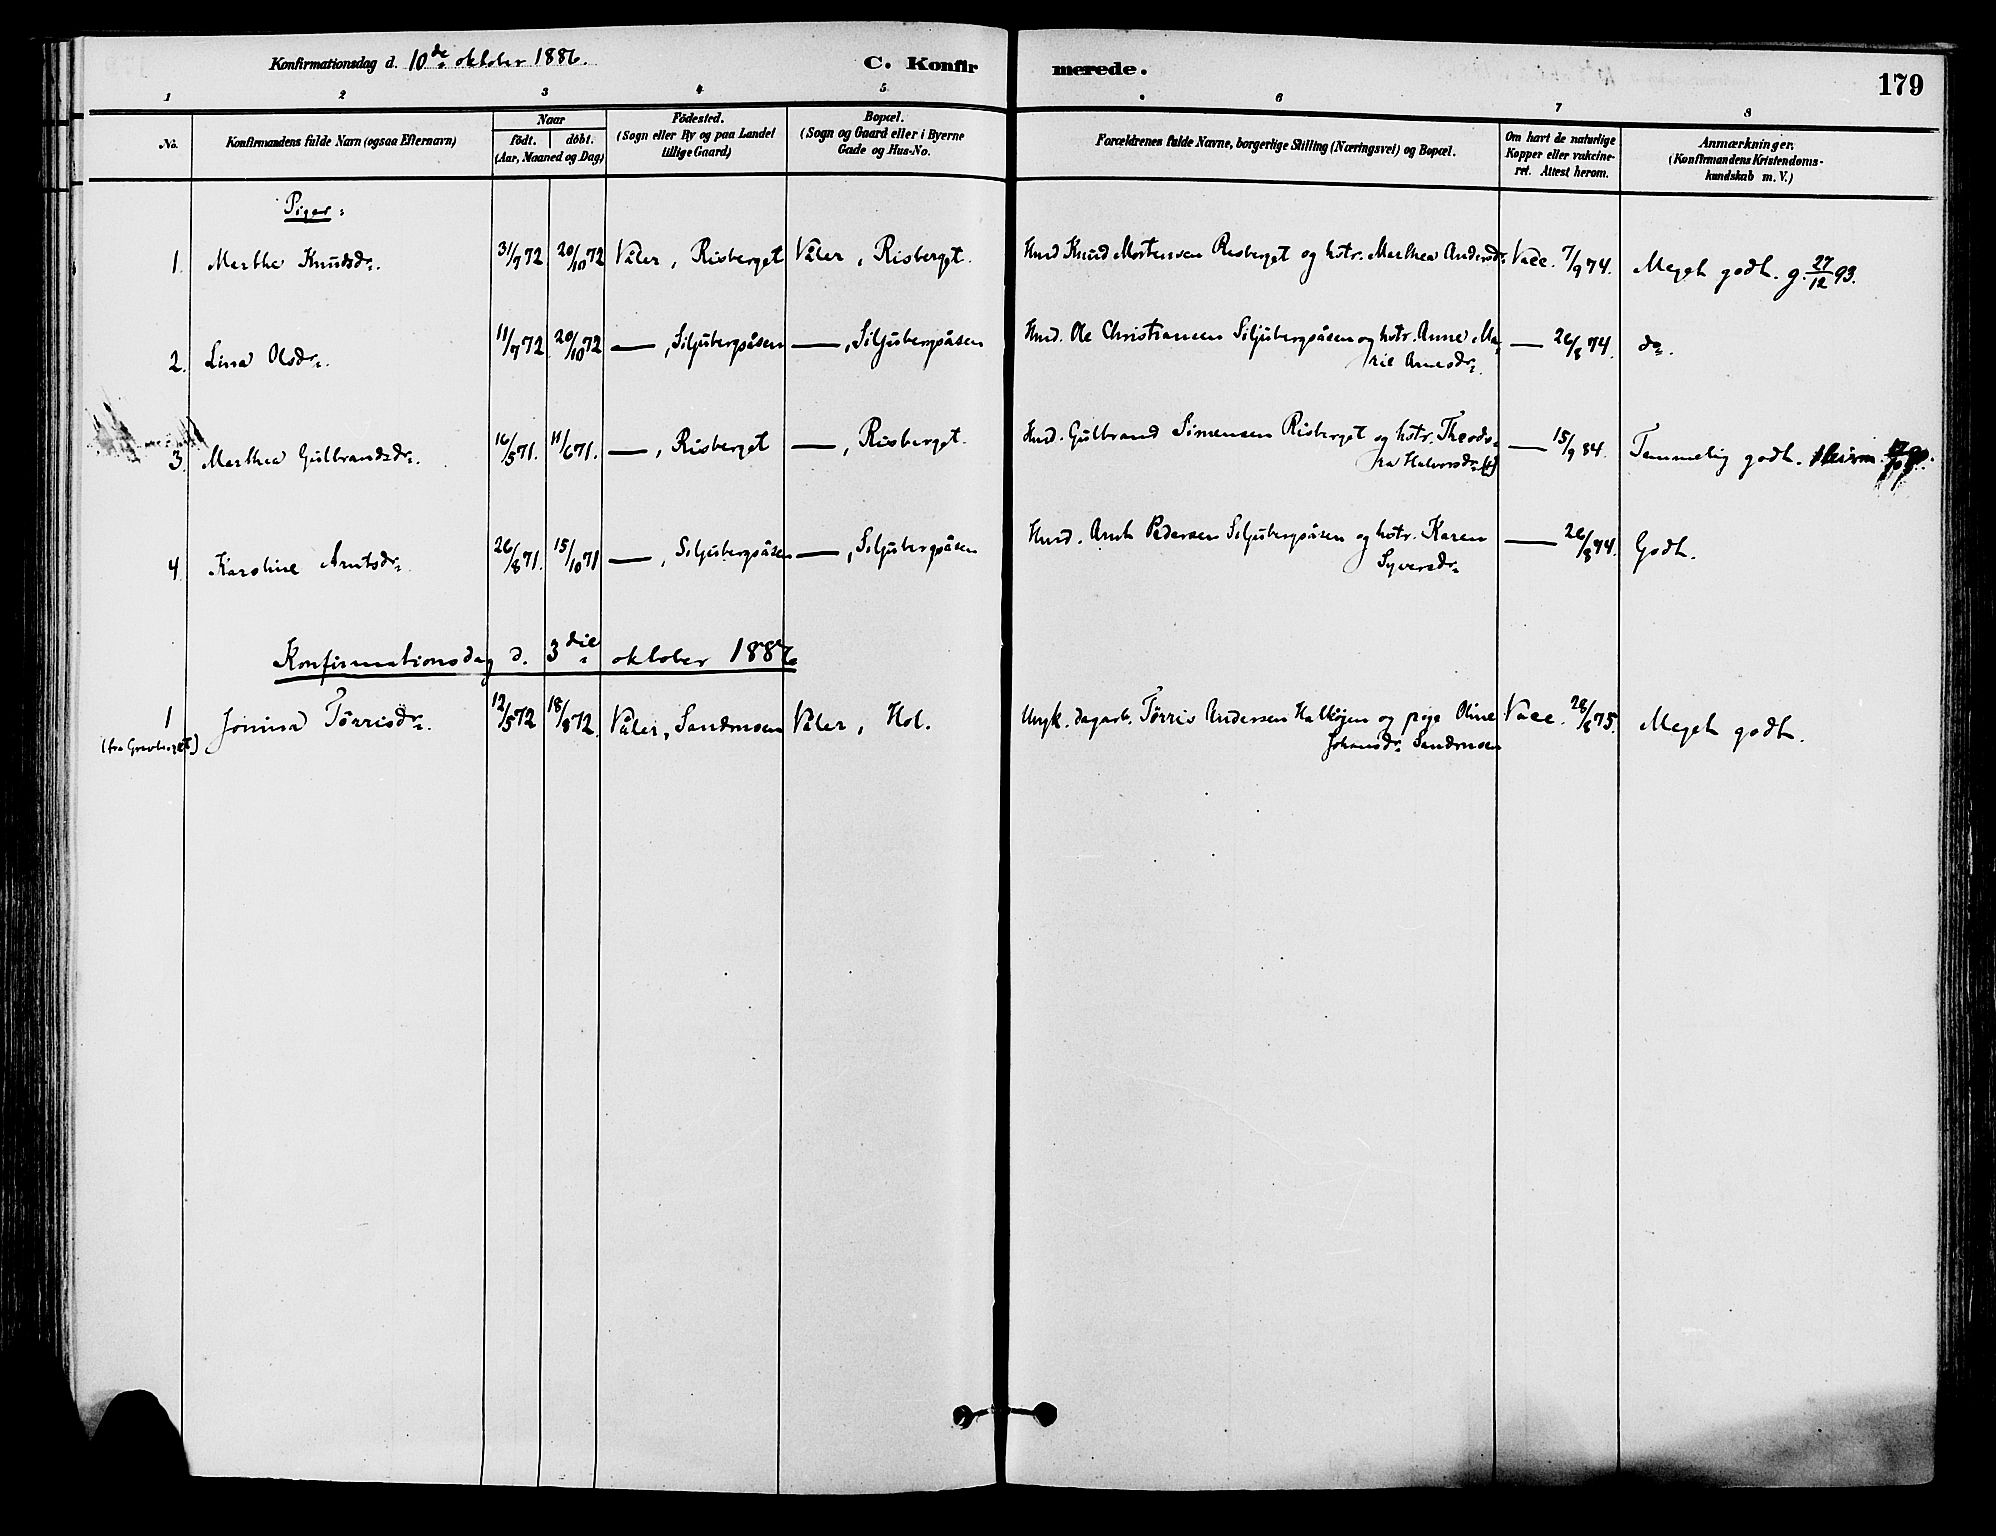 Konfirmationsdag d. 10de oktober 1886.
C. Konfir
merede.
179
1 2 3 4 5 6 7 8
No. Konfirmandens fulde Navn (ogsaa Efternavn) Naar födt. döbt. (Aar, Maaned og Dag) Födested. (Sogn eller By og paa Landet tillige Gaard) Bopæl. (Sogn og Gaard eller i Byerne Gade og Hus-No. Forældrenes fulde Navne, borgerlige Stilling (Næringsvei) og Bopæl. Om havt de naturlige Kopper eller vakcineret. Attest herom. Anmærkninger. (Konfirmandens Kristendomskundskab m. V.)
Piger:
1. Marthe Knudsdr. 31/7 72 20/10 72 Våler, Risberget Våler, Risberget. Husd Knud Mortensen Risberget og hstr. Marthea Andersdr. Vacc. 7/9 74. Meget godt. g. 27/12 93.
2. Lina Olsdr. 11/7 72 20/10 72 — , Siljubergsåsen — , Siljubergsåsen Husd. Ole Christiansen Siljubergsåsen og hstr. Anne Ma-
rie Arnesdr. — 26/8 74. do.
3. Marthea Gulbrandsdr. 16/5 71. 11/6 71. — , Risberget — , Risberget. Husd. Gulbrand Simensen Risberget og hstr. Theodo-
ra Halvorsdr. — 15/9 84. Temmelig godt.
4. Karoline Arntsdr. 26/8 71. 15/10 71 — , Siljubergsåsen — , Siljubergsåsen Husd. Arnt Pedersen Siljubergsåsen og hstr. Karen
Syversdr. — 26/8 74. Godt.
Konfirmationsdag d. 3die oktober 1886
1 Jonina Tørrisdr. 12/5 72 18/8 72. Våler, Sandmoen Våler, Hol. Ungk. dagarb. Tørris Andersen Halkøjen og pige Oline Vacc. 28/8 75. Meget godt.
(fra Gravberget) Johansdr. Sandmoen